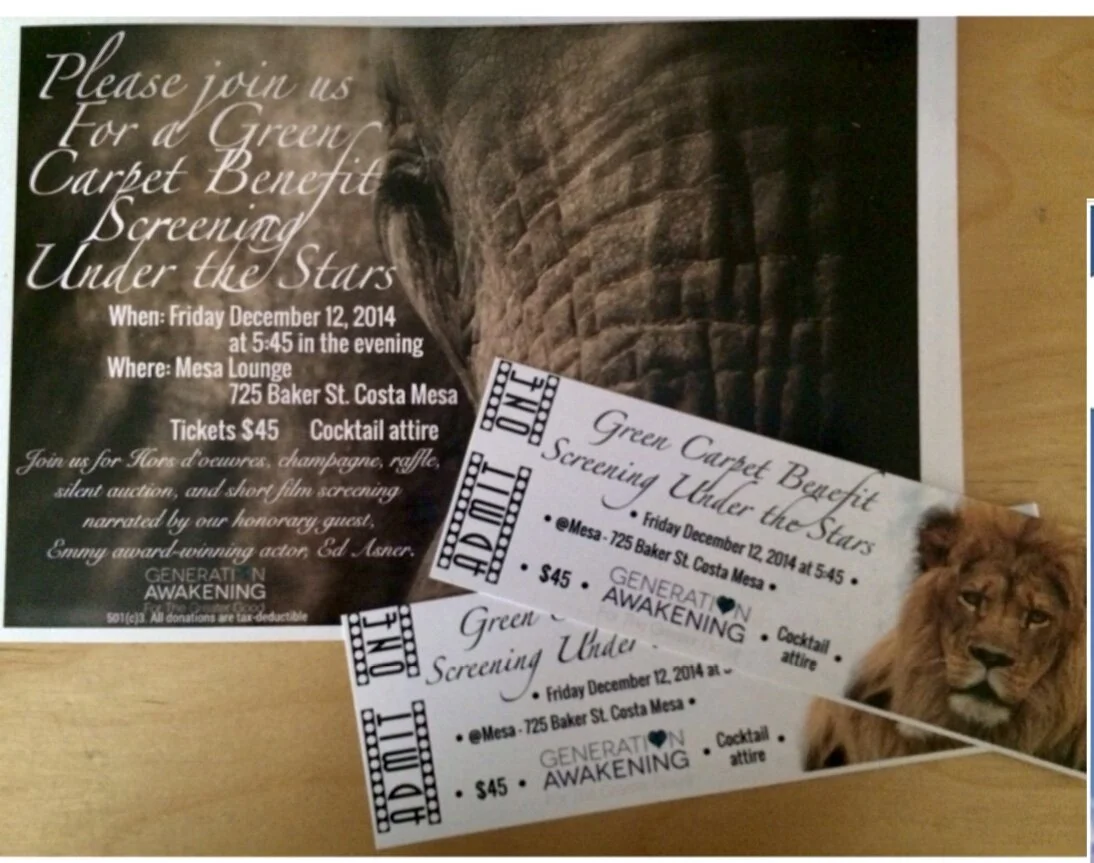 Please join us
For a Green
Carpet Benefit
Screening
Under the Stars
When: Friday December 12, 2014
at 5:45 in the evening
Where: Mesa Lounge
725 Baker St. Costa Mesa
Tickets $45 Cocktail attire
Join us for Hors d'oeuvres, champagne, raffle,
silent auction, and short film screening
narrated by our honorary guest,
Emmy award-winning actor, Ed Asner.
GENERATION
AWAKENING
For The Greater Good
501(c)3. All donations are tax-deductible
ADMIT ONE
Green Carpet Benefit
Screening Under the Stars
• Friday December 12, 2014 at 5:45 •
• @Mesa - 725 Baker St. Costa Mesa •
• $45 •
GENERATION
AWAKENING
• Cocktail
attire •
ADMIT ONE
Green
Screening Under
• Friday December 12, 2014 at
• @Mesa - 725 Baker St. Costa Mesa •
• $45 •
GENERATION
AWAKENING
• Cocktail
attire •